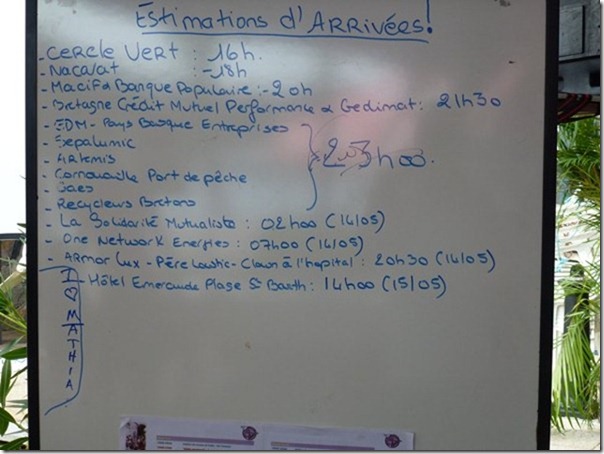 Estimations d'Arrivées!
- Cercle Vert : 16h.
- Nacarat :-18h
- Macif & Banque Populaire :-20h
- Bretagne Crédit Mutuel Performance & Gedimat : 21h30
- EDM - Pays Basque Entreprises
- Exepalumic
- Artemis
- Cornouaille Port de pêche
- Gaes
- Recycleurs Bretons
23h00.
- La Solidarité Mutualiste : 02h00 (14/05)
- One Network Energies : 07h00 (14/05)
- Armor Lux - Père Loustic - Clown à l'hopital : 20h30 (14/05)
- Hôtel Emeraude Plage St Barth : 14h00 (15/05)
I ♡ MATHIA